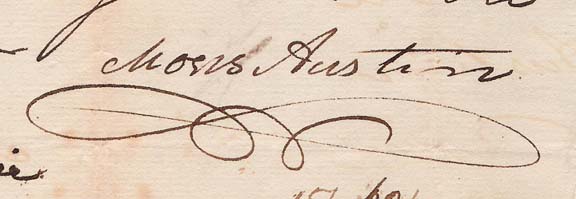 Moses Austin